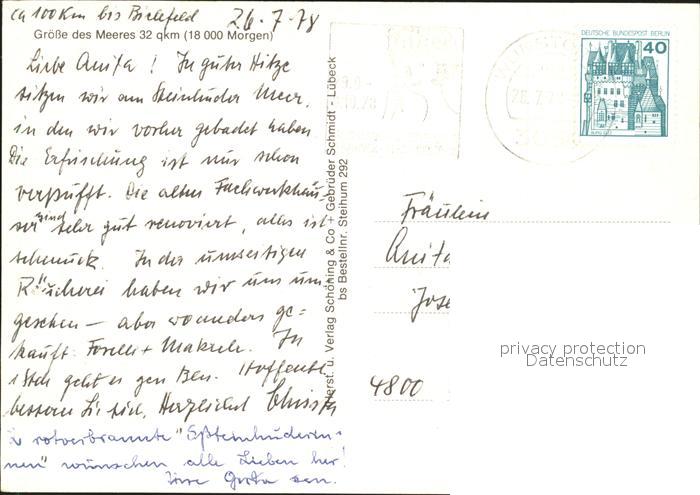 ca 100 Km bis Bielefeld 26.7.78
Größe des Meeres 32 qkm (18 000 Morgen)
Liebe Anita! In guter Hitze
sitzen wir am Steinhuder Meer,
in den wir vorher gebadet haben
Die Erfrischung ist nur schon
verpufft. Die alten Fachwerkhäu-
ser sind sehr gut renoviert, alles ist
schmuck. In der umseitigen
Räucherei haben wir uns um
gesehen – aber woanders ge-
kauft: Forelle + Makrele. In
geht es gen Blm. Hoffentl.
bessern Sie sich, Herzlichst Christa
2 rotverbrannte "Steinhuderin-
nen" wünschen alle Lieben her!
Ihre Greta sen.
Herst. u. Verlag Schöning & Co + Gebrüder Schmidt - Lübeck
bs Bestellnr. Steihum 292
DEUTSCHE BUNDESPOST BERLIN
40
BURG ELTZ
Fräulein
Anita
Jose
4800
privacy protection
Datenschutz